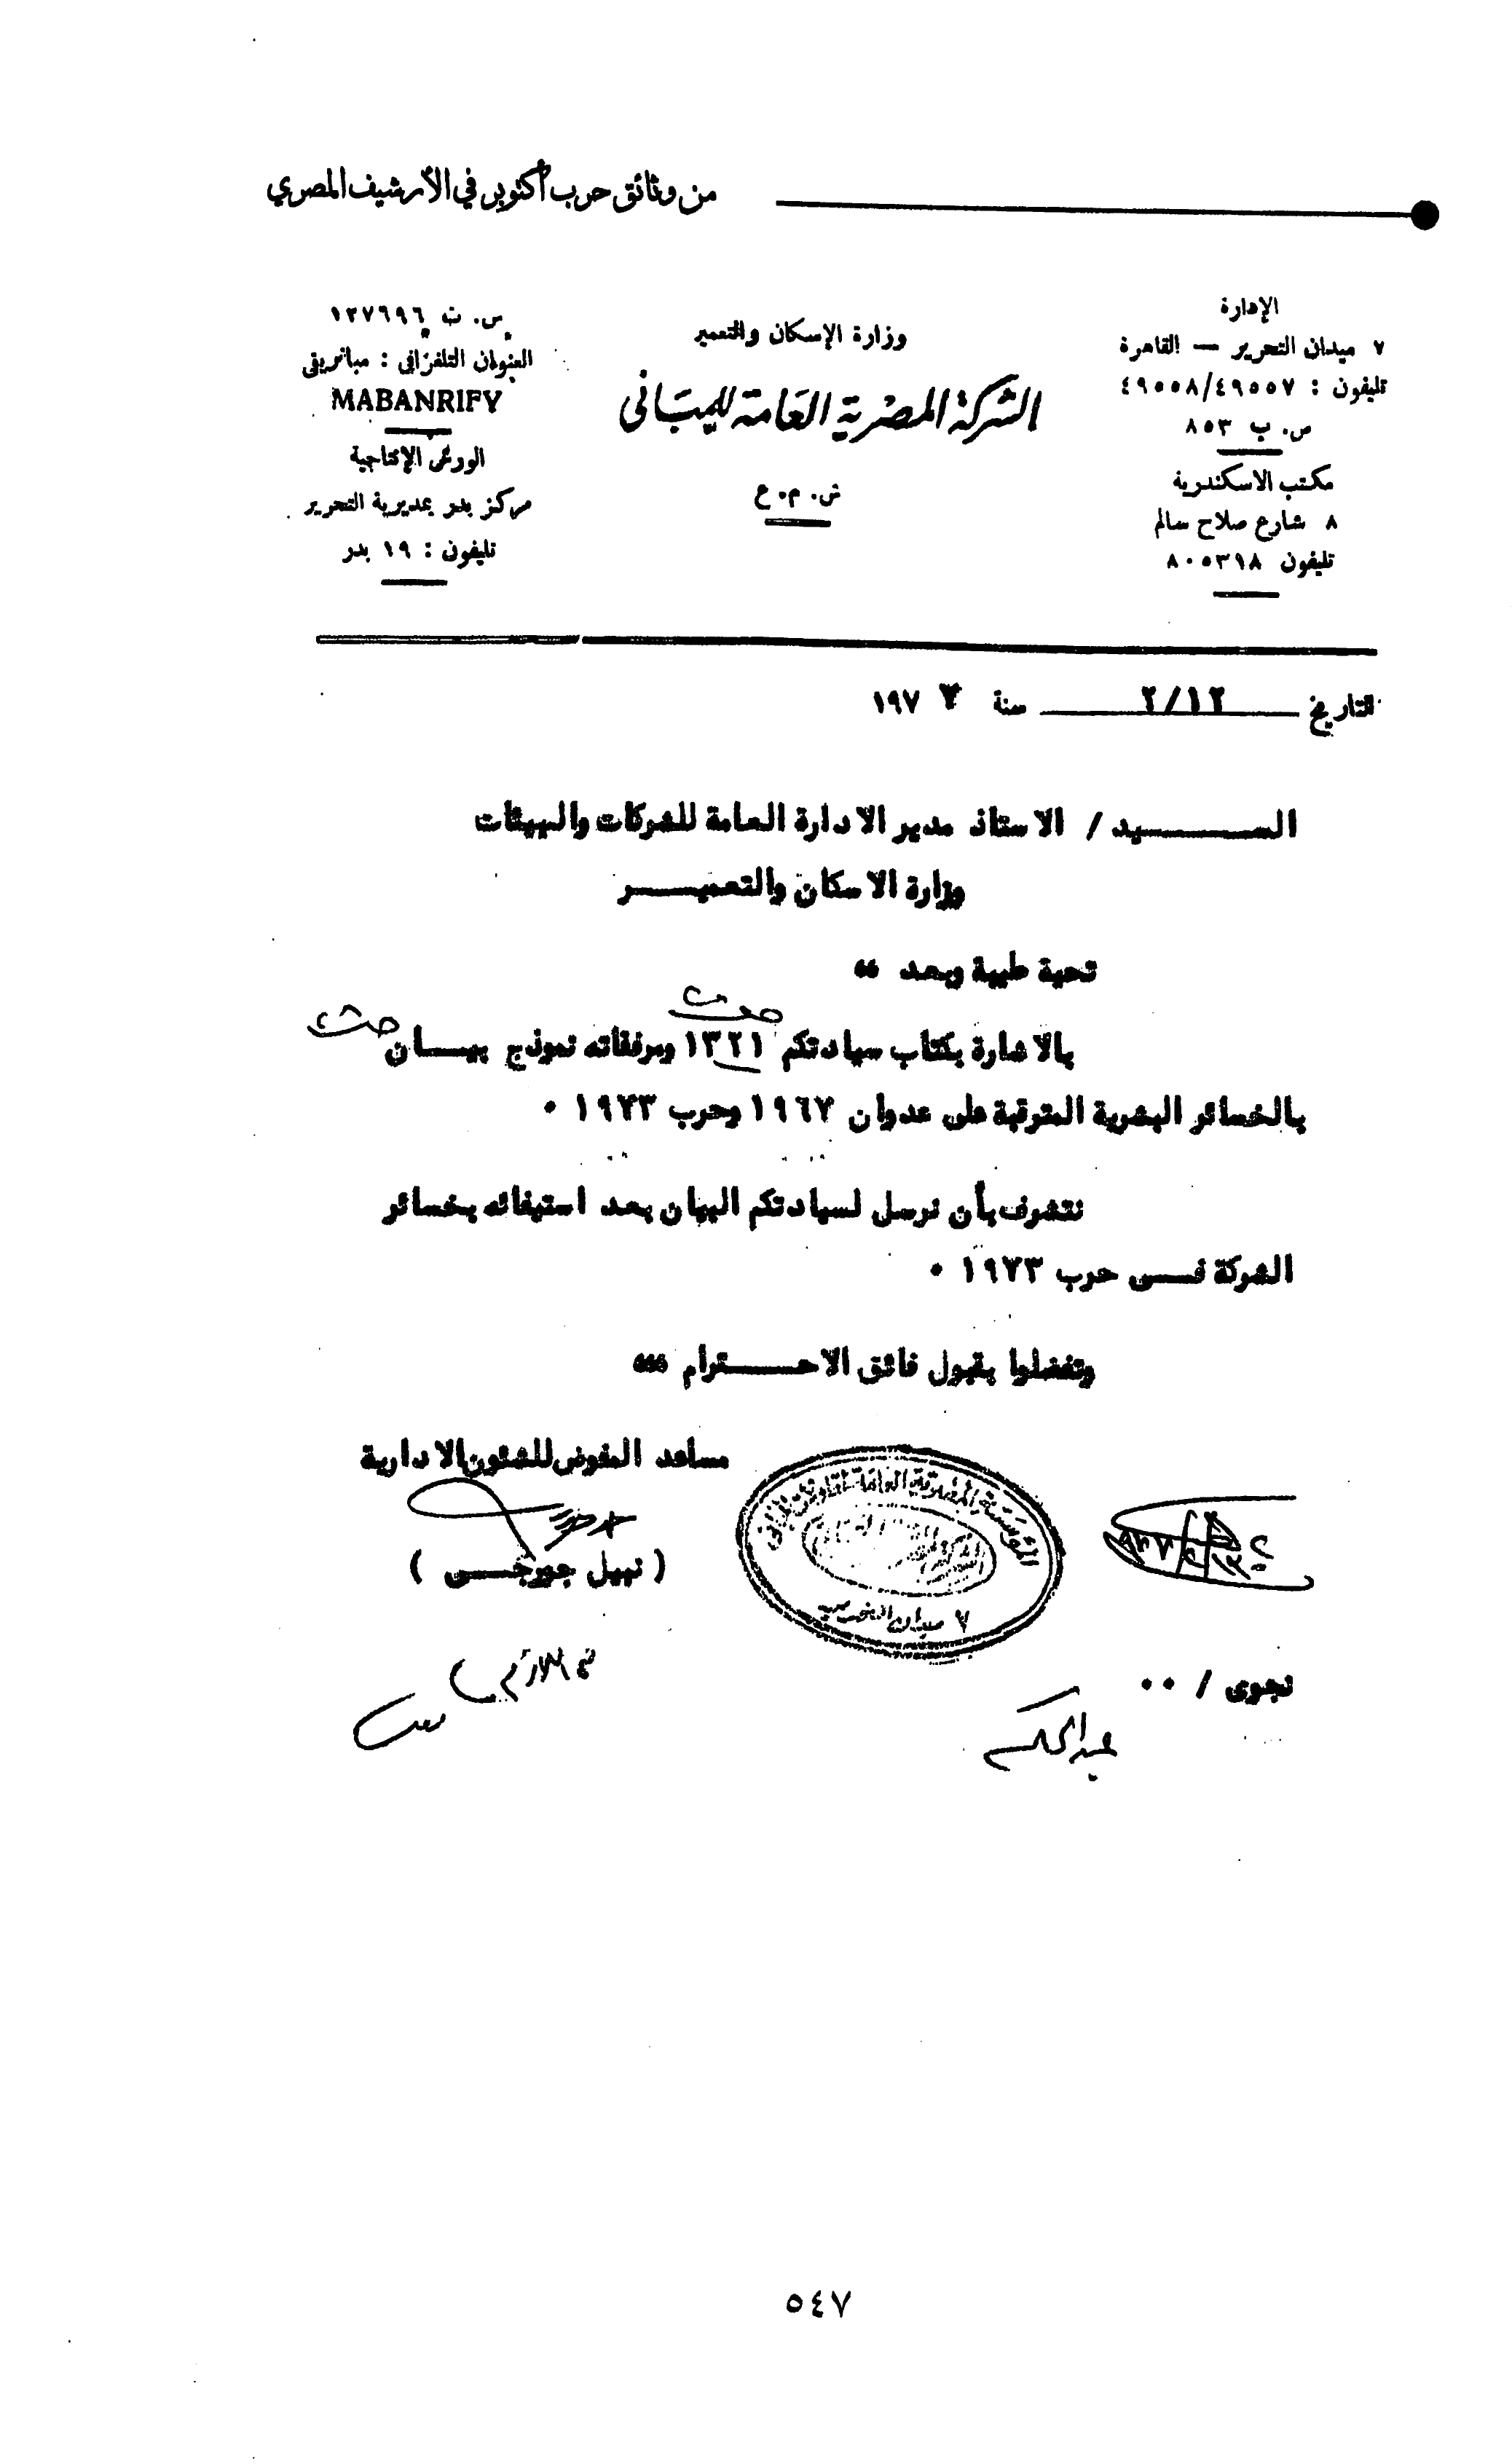 من وثائق حرب أكتوبر في الأرشيف المصري
الإدارة
٧ ميدان التحرير — القاهرة
تليفون : ٤٩٥٥٨/٤٩٥٥٧
ص. ب ٨٥٣
مكتب الاسكندرية
٨ شارع صلاح سالم
تليفون ٨٠٥٣١٨
وزارة الإسكان والتعمير
الشركة المصرية العامة للمبانى
ش. م. ع
س. ت ١٢٧٦٩٦
العنوان التلغرافى : مبانريفى
MABANRIFY
الورش الإنتاجية
مركز بدر بمديرية التحرير
تليفون : ١٩ بدر
التاريخ ٢/١٢ سنة ١٩٧٧
الســـــيد / الاستاذ مدير الادارة العامة للشركات والهيئات
وزارة الاسكان والتعميـــر
تحية طيبة وبعد ،،
بالاشارة بكتاب سيادتكم ١٣٢١ ومرفقاته نموذج بيـــان
بالخسائر البشرية المترقبة على عدوان ١٩٦٧ وحرب ١٩٧٣ ٠
نتشرف بأن نرسل لسيادتكم البيان بعد استيفائه بخسائر
الشركة فـــى حرب ١٩٧٣ ٠
وتفضلوا بقبول فائق الاحـــــترام ،،،
مساعد المفوض للشئون الادارية
( نبيل جورجـــى )
٧ ميدان التحرير
نجوى / ٠٠
عبدالحكم
٥٤٧